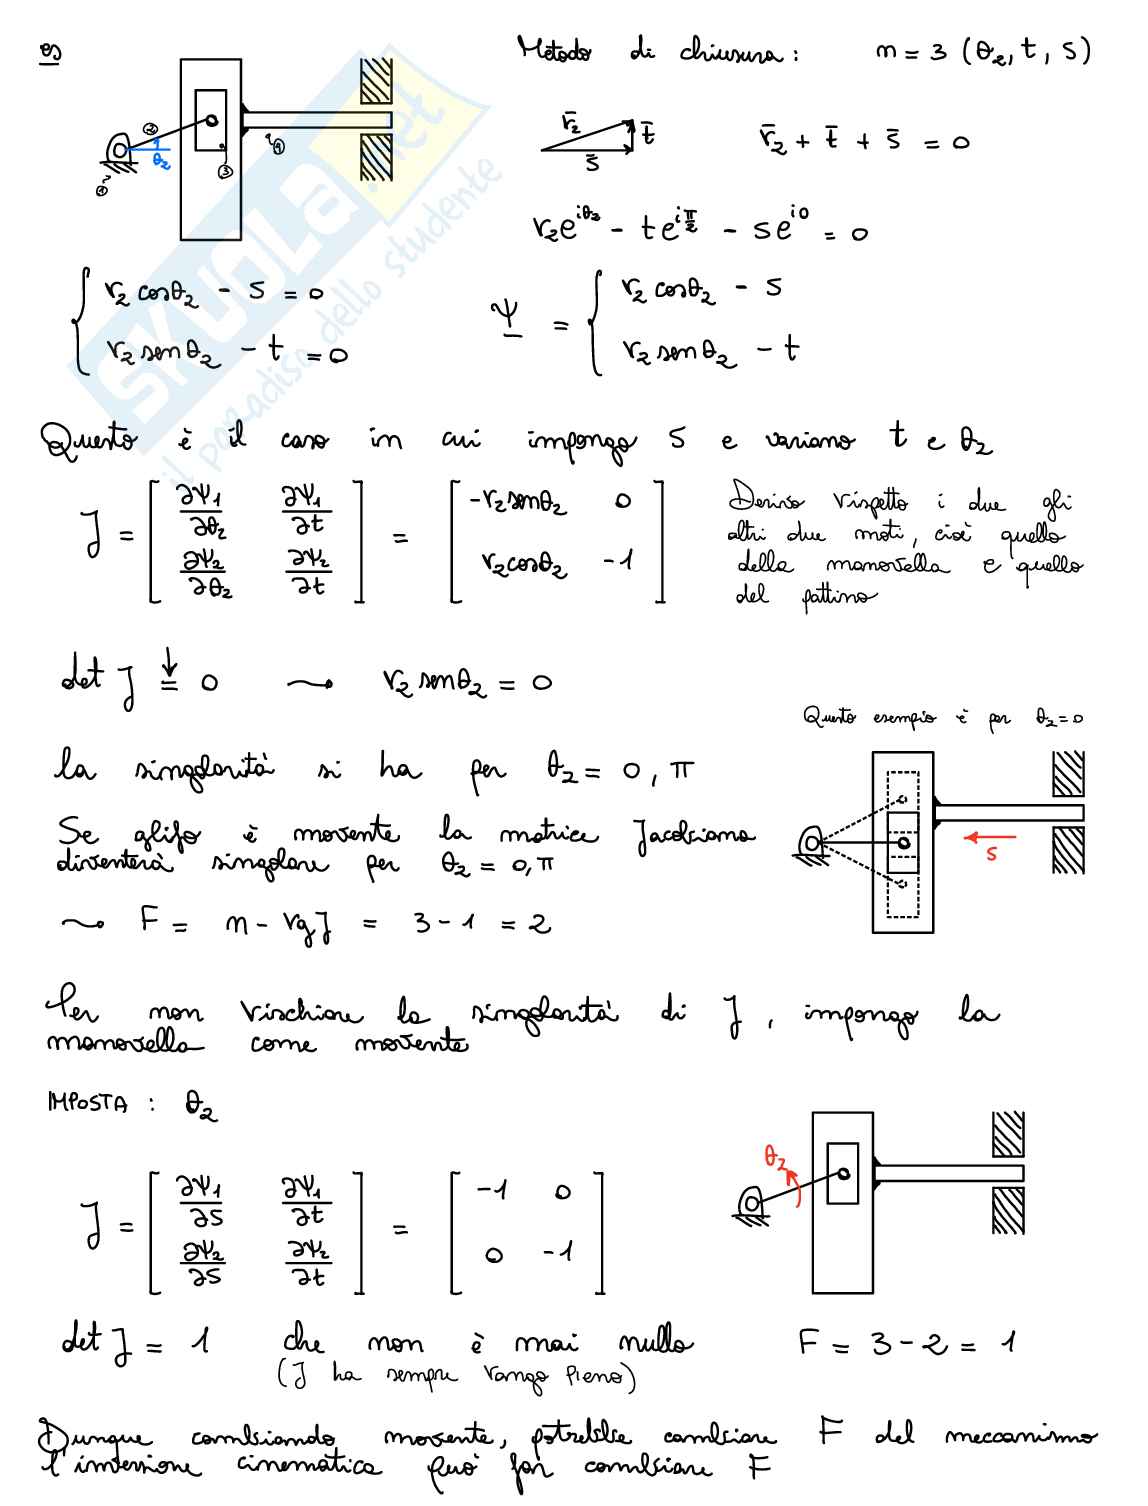 es
Metodo di chiusura: n = 3 (θ₂, t, s)
② ① θ₂ ③ ④
r̄₂ t̄ s̄
r̄₂ + t̄ + s̄ = 0
r₂e^{iθ₂} - te^{iπ/2} - se^{i0} = 0
{ r₂ cosθ₂ - s = 0
r₂ senθ₂ - t = 0
Ψ = { r₂ cosθ₂ - s
r₂ senθ₂ - t
SKUOLA.net
il paradiso dello studente
Questo è il caso in cui impongo s e variano t e θ₂
J = [ ∂Ψ₁/∂θ₂ ∂Ψ₁/∂t ; ∂Ψ₂/∂θ₂ ∂Ψ₂/∂t ] = [ -r₂senθ₂ 0 ; r₂cosθ₂ -1 ]
Derivo rispetto i due gli
altri due moti, cioè quello
della manovella e quello
del pattino
det J = 0 ⇝ r₂ senθ₂ = 0
Questo esempio è per θ₂=0
la singolarità si ha per θ₂ = 0, π
Se glifo è movente la matrice Jacobiana
diventerà singolare per θ₂ = 0, π
s
⇝ F = n - rg J = 3 - 1 = 2
Per non rischiare la singolarità di J, impongo la
manovella come movente
IMPOSTA : θ₂
θ₂
J = [ ∂Ψ₁/∂s ∂Ψ₁/∂t ; ∂Ψ₂/∂s ∂Ψ₂/∂t ] = [ -1 0 ; 0 -1 ]
det J = 1 che non è mai nullo F = 3 - 2 = 1
(J ha sempre rango pieno)
Dunque cambiando movente, potrebbe cambiare F del meccanismo
l'inversione cinematica può far cambiare F